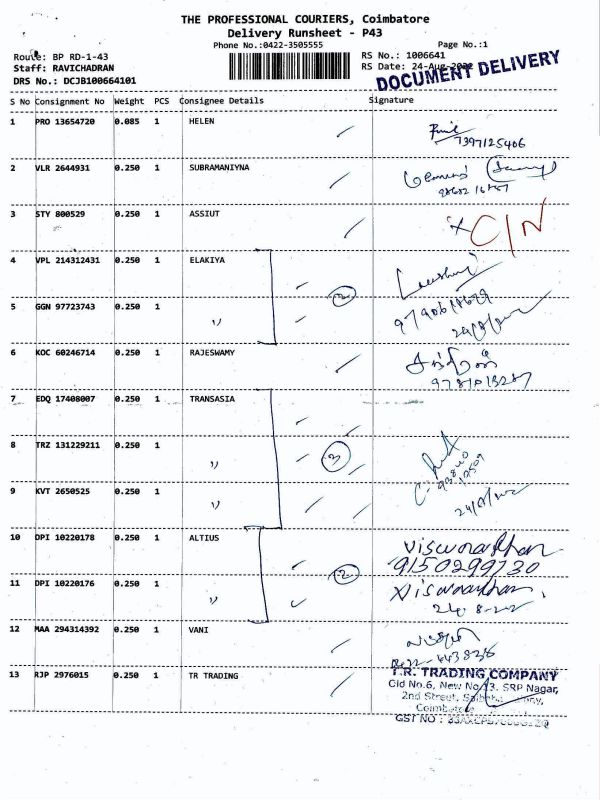 THE PROFESSIONAL COURIERS, Coimbatore
Delivery Runsheet - P43
Phone No.:0422-3505555
Page No.:1
Route: BP RD-1-43
RS No.: 1006641
Staff: RAVICHADRAN
RS Date: 24-Aug-2022
DRS No.: DCJB100664101
DOCUMENT DELIVERY
S No Consignment No Weight PCS Consignee Details Signature
1 PRO 13654720 0.085 1 HELEN
7397125406
2 VLR 2644931 0.250 1 SUBRAMANIYNA
3 STY 800529 0.250 1 ASSIUT
x C/N
4 VPL 214312431 0.250 1 ELAKIYA
2
5 GGN 97723743 0.250 1 "
6 KOC 60246714 0.250 1 RAJESWAMY
7 EDQ 17408007 0.250 1 TRANSASIA
8 TRZ 131229211 0.250 1 " 3
9 KVT 2650525 0.250 1 "
10 DPI 10220178 0.250 1 ALTIUS
viswanathan
9150299730
2
11 DPI 10220176 0.250 1 "
Viswanathan
24-8-22
12 MAA 294314392 0.250 1 VANI
13 RJP 2976015 0.250 1 TR TRADING
T.R. TRADING COMPANY
Old No.6, New No.13, SRP Nagar,
2nd Street,
Coimbatore
GST NO :